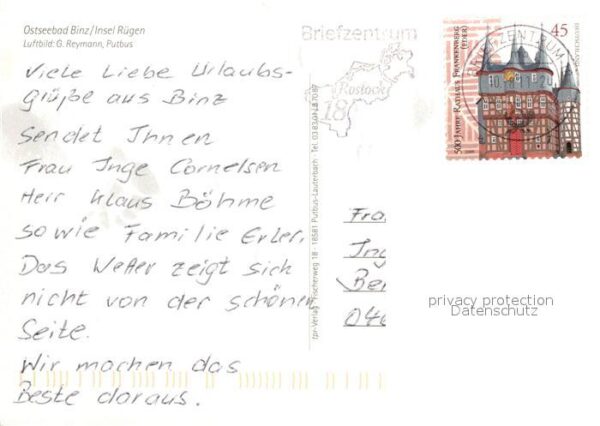 Ostseebad Binz/Insel Rügen
Luftbild: G. Reymann, Putbus
Viele Liebe Urlaubs-
grüße aus Binz
sendet Ihnen
Frau Inge Cornelsen
Herr Klaus Böhme
sowie Familie Erler.
Das Wetter zeigt sich
nicht von der schönen
Seite.
Wir machen das
Beste daraus.
Briefzentrum
Rostock
18
500 JAHRE RATHAUS FRANKENBERG
(EDER)
45
DEUTSCHLAND
BRIEFZENTRUM
rpr-Verlag
Fischerweg 18 · 18581 Putbus-Lauterbach · Tel.
Fra
Ing
Ber
04
privacy protection
Datenschutz